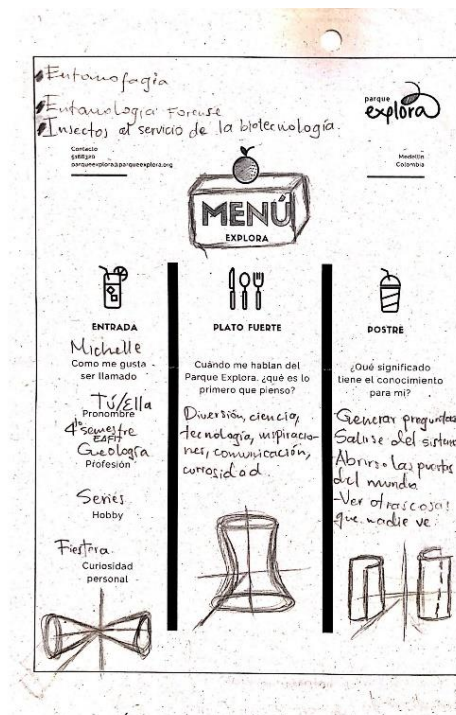 Entomofagia
Entomología Forense
Insectos al servicio de la biotecnología.
parque
explora
Contacto
parqueexplora@parqueexplora.org
Medellín
Colombia
MENÚ
EXPLORA
ENTRADA
Michelle
Como me gusta
ser llamado
Tú/Ella
Pronombre
4to semestre
EAFIT
Geología
Profesión
Series
Hobby
Fiestera.
Curiosidad
personal
PLATO FUERTE
Cuándo me hablan del
Parque Explora. ¿qué es lo
primero que pienso?
Diversión, ciencia,
tecnología, inspiracio-
nes, comunicación,
curiosidad
POSTRE
¿Qué significado
tiene el conocimiento
para mi?
-Generar preguntas
Salirse del sistema
Abrirse las puertas
del mundo
-Ver otras cosas
que nadie ve.